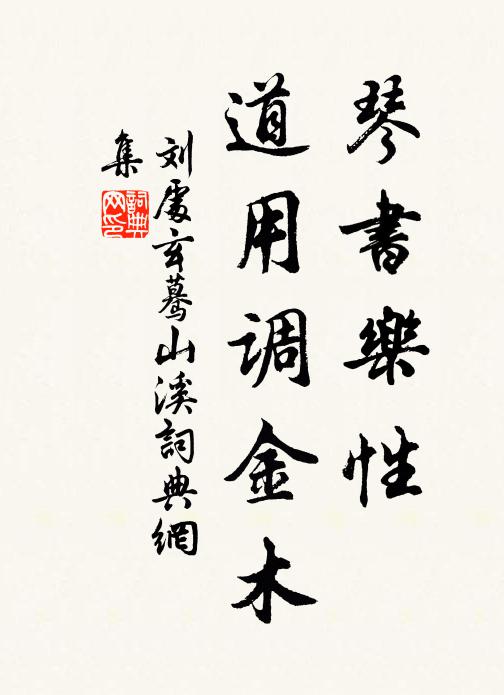 琴書樂性
道用调金木
刘處玄驀山溪詞典網
集
詞典
网印